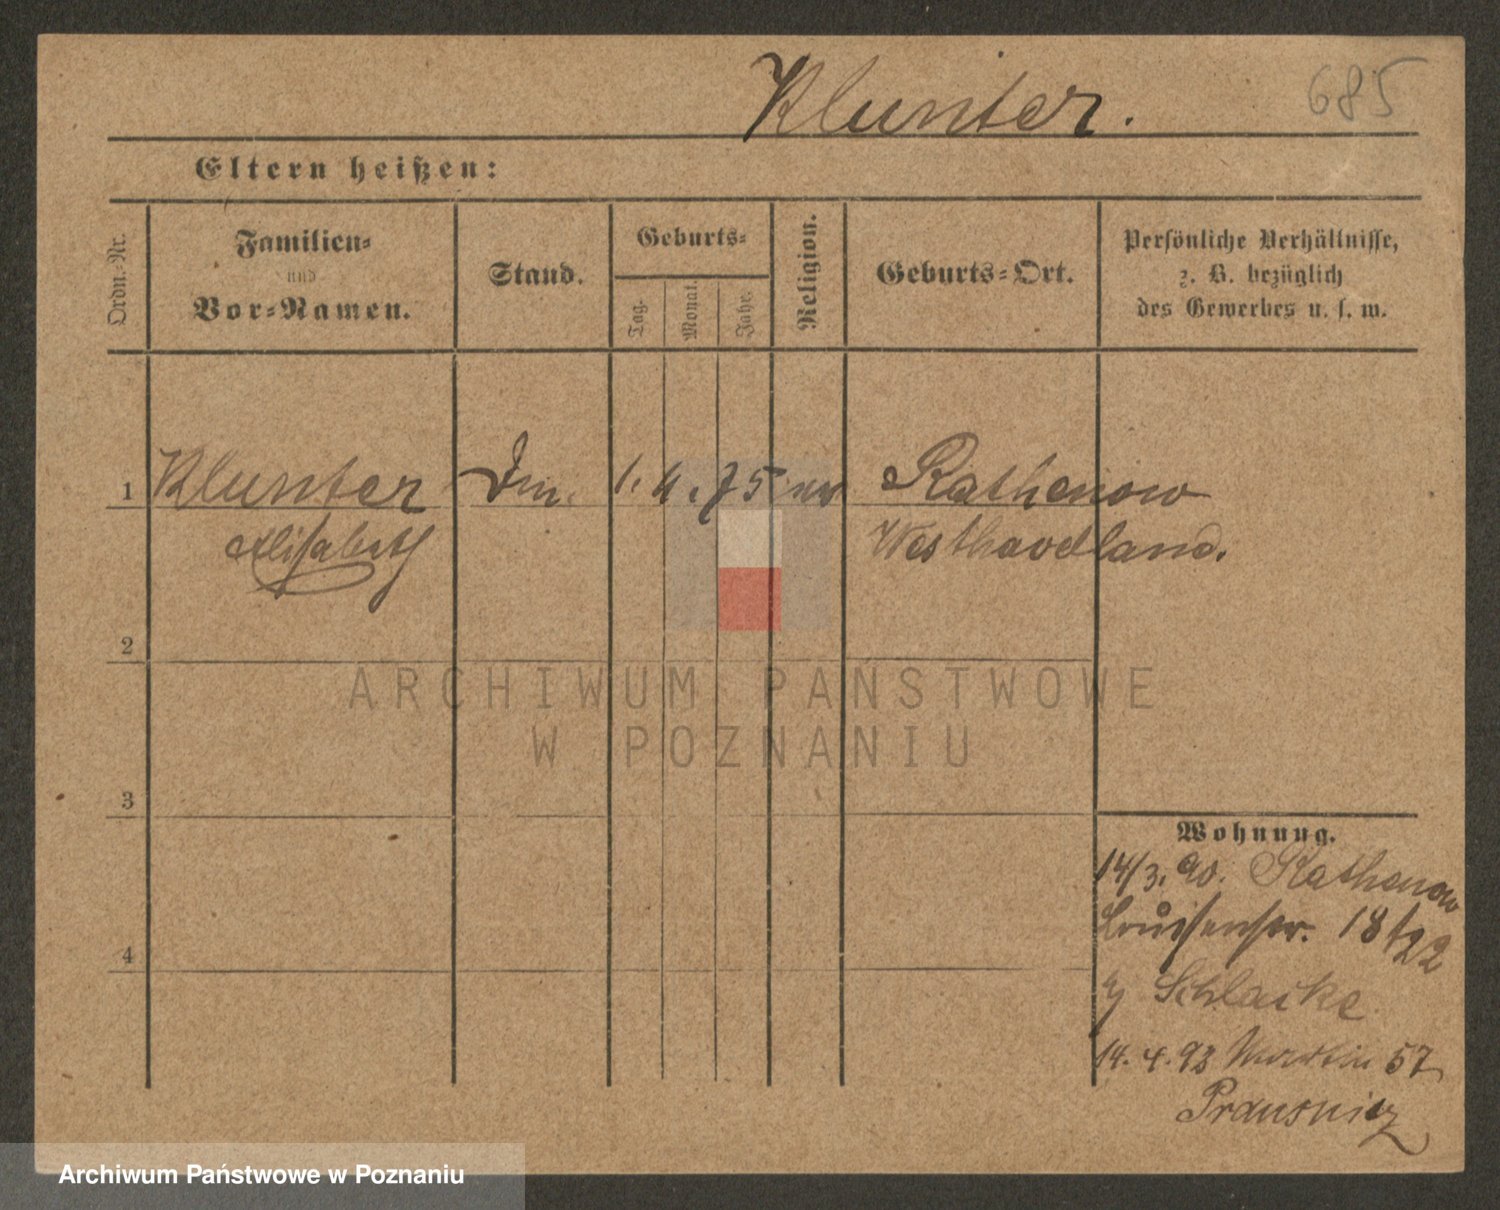 Klunter.
685
Eltern heißen:
Ordn.-Nr.
Familien-
und
Vor-Namen.
Stand.
Geburts-
Tag.
Monat.
Jahr.
Religion.
Geburts-Ort.
Persönliche Verhältnisse,
z. B. bezüglich
des Gewerbes u. s. w.
1 Klunter 1. 4. 75 Rathenow
Elisabeth Westhavelland.
2
3
4
Wohnung.
14/3. 90. Rathenow
Louisenstr. 18 /22
Schlacke
14. 4. 93 57
Prausnitz
ARCHIWUM PAŃSTWOWE
W POZNANIU
Archiwum Państwowe w Poznaniu